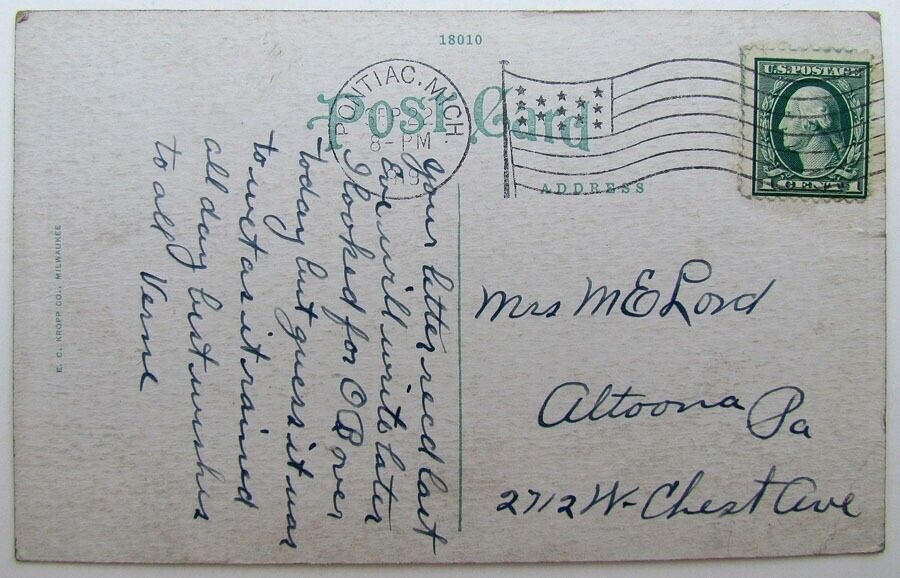 18010
Post Card
PONTIAC, MICH.
SEP 22
8-PM
U.S. POSTAGE
1 CENT 1
ADDRESS
Mrs M E Lord
Altoona Pa
2712 W- Chest Ave
Your letter recd last
Eve will write later
I looked for O B over
today but guess it was
to wet as it rained
all day best wishes
to all Verne
E. C. KROPP CO., MILWAUKEE